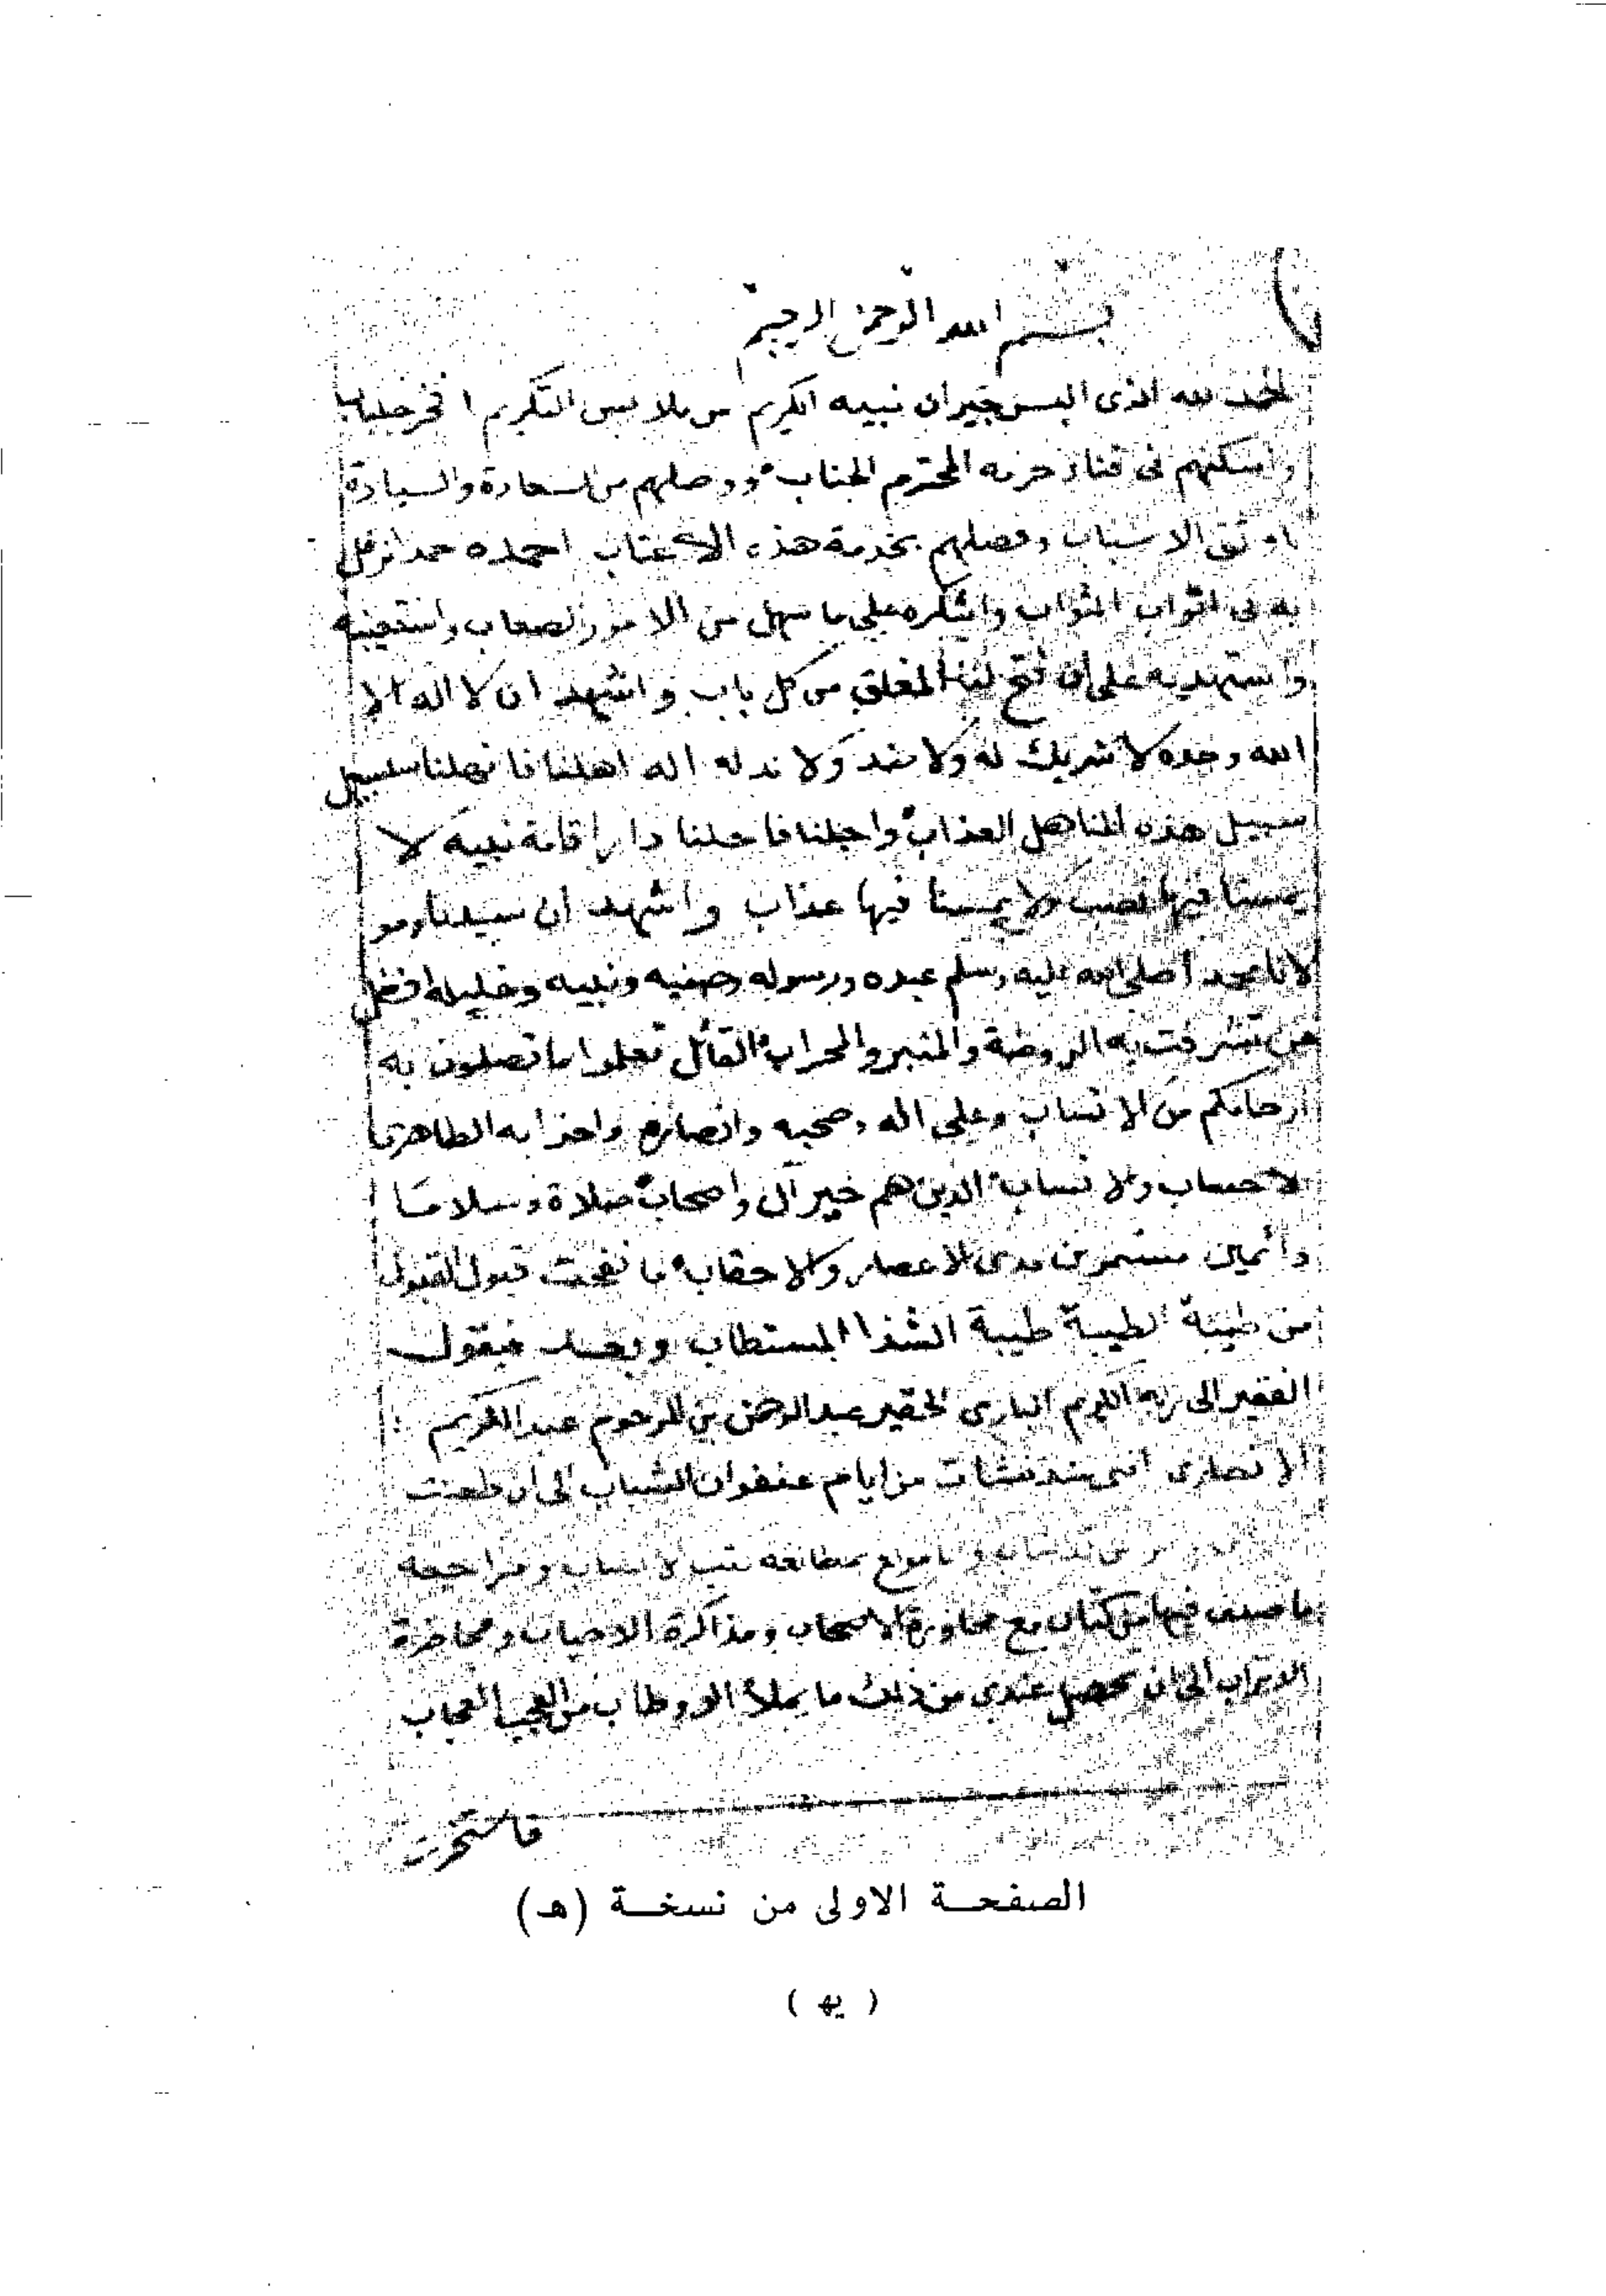 بسم الله الرحمن الرحيم
الحمد لله الذى البس جيران نبيه الكريم من ملابس التكريم افخر جلباب
واسكنهم فى فناء حرمه المحترم الجناب ووصلهم من السعادة والسيادة
باوثق الاسباب وفضلهم بخدمة هذه الاعتاب احمده حمدا نرفل
به فى اثواب الثواب واشكره على ما سهل من الامور الصعاب واستعينه
واستهديه على ان فتح لنا المغلق من كل باب واشهد ان لا اله الا
الله وحده لا شريك له ولا ضد ولا ند له اله اهلنا فانهلنا سلسبيل
سبيل هذه المناهل العذاب واحلنا فاحلنا دار اقامة نبيه لا
يمسنا فيها نصب ولا يمسنا فيها عذاب واشهد ان سيدنا ومو
لانا محمد اصلى الله عليه وسلم عبده ورسوله وصفيه ونبيه وخليله افضل
من تشرفت به الروضة والمنبر والمحراب القائل تعلموا ما تصلون به
ارحامكم من الانساب وعلى اله وصحبه وانصاره واحزابه الطاهرى
الاحساب والانساب الذين هم خير آل واصحاب صلاة وسلاما
دائمين مستمرين مدى الاعصار والاحقاب ما نفحت قبول القبول
من طيبة الطيبة طيبة الشذا المستطاب وبعد فيقول
الفقير الى ربه الكريم البارى الحقير عبد الرحمن بن المرحوم عبد الكريم
الانصارى انى منذ نشات من ايام عنفوان الشباب الى ان طعنت
وانا مولع بمطالعة كتب الانساب ومراجعة
ما صنف فيها من كتاب مع محاورة الاصحاب ومذاكرة الاحباب ومحاضرة
الاتراب الى ان تحصل عندى من ذلك ما يملأ الاوطاب من العجب العجاب
فاستخرت
الصفحة الاولى من نسخة (هـ)
( يه )